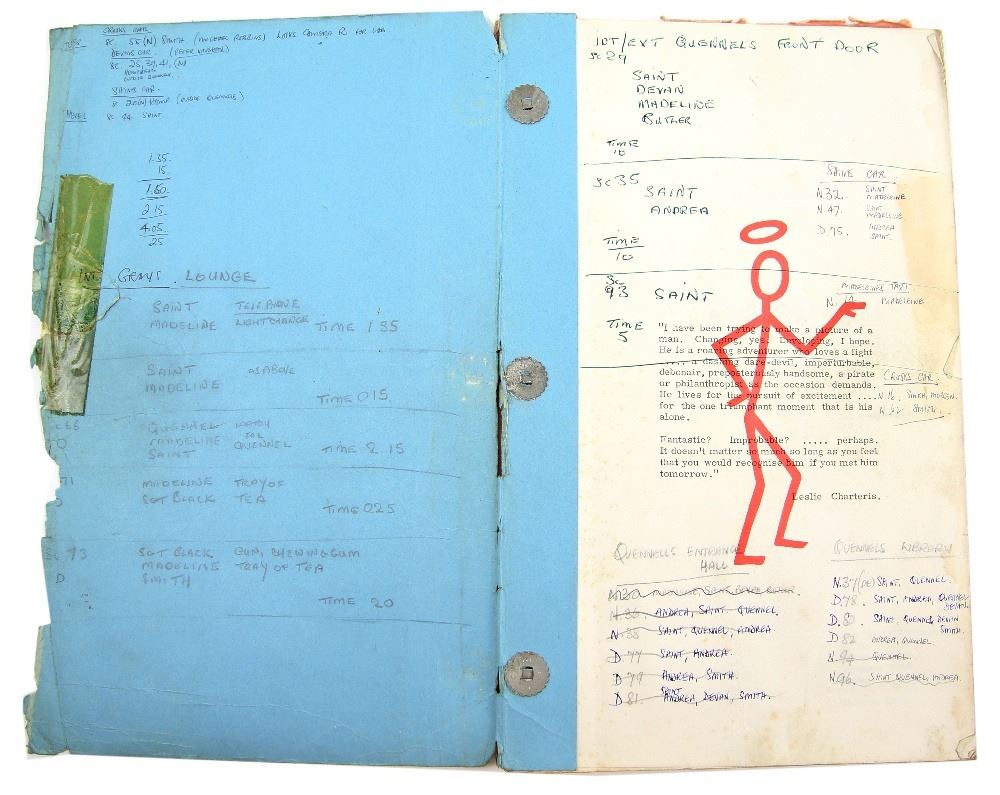 CROOKS CAR
SC 55 (N) SMITH LOOKS CAMERA R FOR
DEVANS CAR.
SC. 25, 39, 41, (N)
SAINTS CAR.
SC 44 SAINT
1.35.
15.
1.50.
2.15.
4.05.
25
INT. GRAYS. LOUNGE
SAINT TELEPHONE
MADELINE LIGHT CHANGE TIME 1 35
SAINT AS ABOVE
MADELINE
TIME 015
66 QUENNEL WATCH
MADELINE FOR
SAINT QUENNEL TIME 2.15
71 MADELINE TRAY OF
SGT BLACK TEA
TIME 025
SC 93 SGT BLACK GUN, CHEWING GUM
MADELINE TRAY OF TEA
D SMITH
TIME 20
INT/EXT QUENNELS FRONT DOOR
SC 29
SAINT
DEVAN
MADELINE
BUTLER
TIME
10
SC 35
SAINT
ANDREA
TIME
10
SAINTS CAR
N32. SAINT MADELEINE
N.47. SAINT MADELEINE
D.75. ANDREA SAINT.
SC
93 SAINT
TIME
5
MADELEINES TAXI
MADELEINE
"I have been trying to make a picture of a
man. Changing, yes. Developing, I hope.
He is a roaring adventurer who loves a fight
.... a dashing dare-devil, imperturbable,
debonair, preposterously handsome, a pirate
or philanthropist as the occasion demands.
He lives for the pursuit of excitement ....
for the one triumphant moment that is his
alone.
CROOKS CAR.
SMITH.
Fantastic? Improbable? ..... perhaps.
It doesn't matter so much so long as you feel
that you would recognise him if you met him
tomorrow."
Leslie Charteris.
QUENNELLS ENTRANCE
HALL
ANDREA, SAINT QUENNEL.
SAINT, QUENNEL, ANDREA
D 77 SAINT, ANDREA.
D 79 ANDREA, SMITH.
D 81. SAINT ANDREA, DEVAN, SMITH.
QUENNELS LIBRARY
N.37 SAINT. QUENNEL.
D.78. SAINT, ANDREA, QUENNEL DEVAN.
D.80. SAINT, QUENNEL, DEVAN SMITH.
D 82 ANDREA, QUENNEL
N 94 QUENNEL.
N96. SAINT QUENNEL, ANDREA.